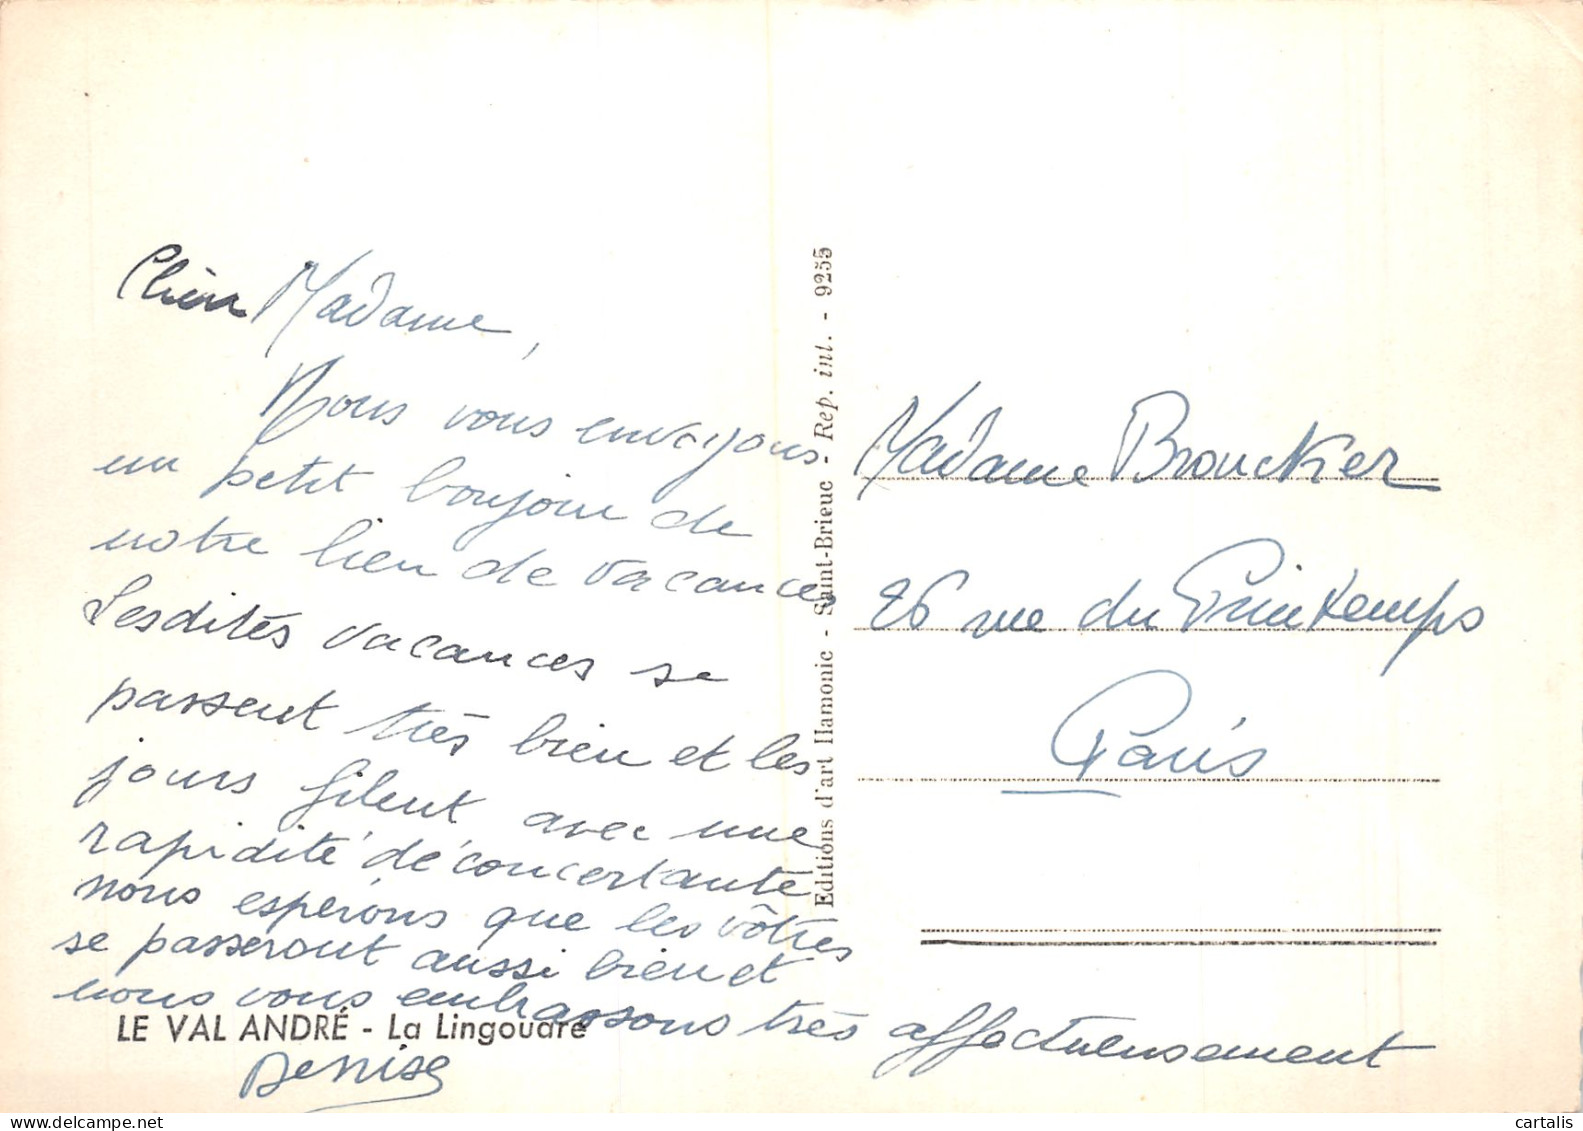 Chère Madame,
Nous vous envoyons
un petit bonjour de
notre lieu de vacances
Lesdites vacances se
passent très bien et les
jours filent avec une
rapidité déconcertante
nous espérons que les vôtres
se passeront aussi bien et
nous vous embrassons très affectueusement
LE VAL ANDRÉ - La Lingouare
Denise
Editions d'art Hamonic - Saint-Brieuc - Rep. int. - 9255
Madame Brouckier
26 rue du Printemps
Paris
delcampe.net
cartalis